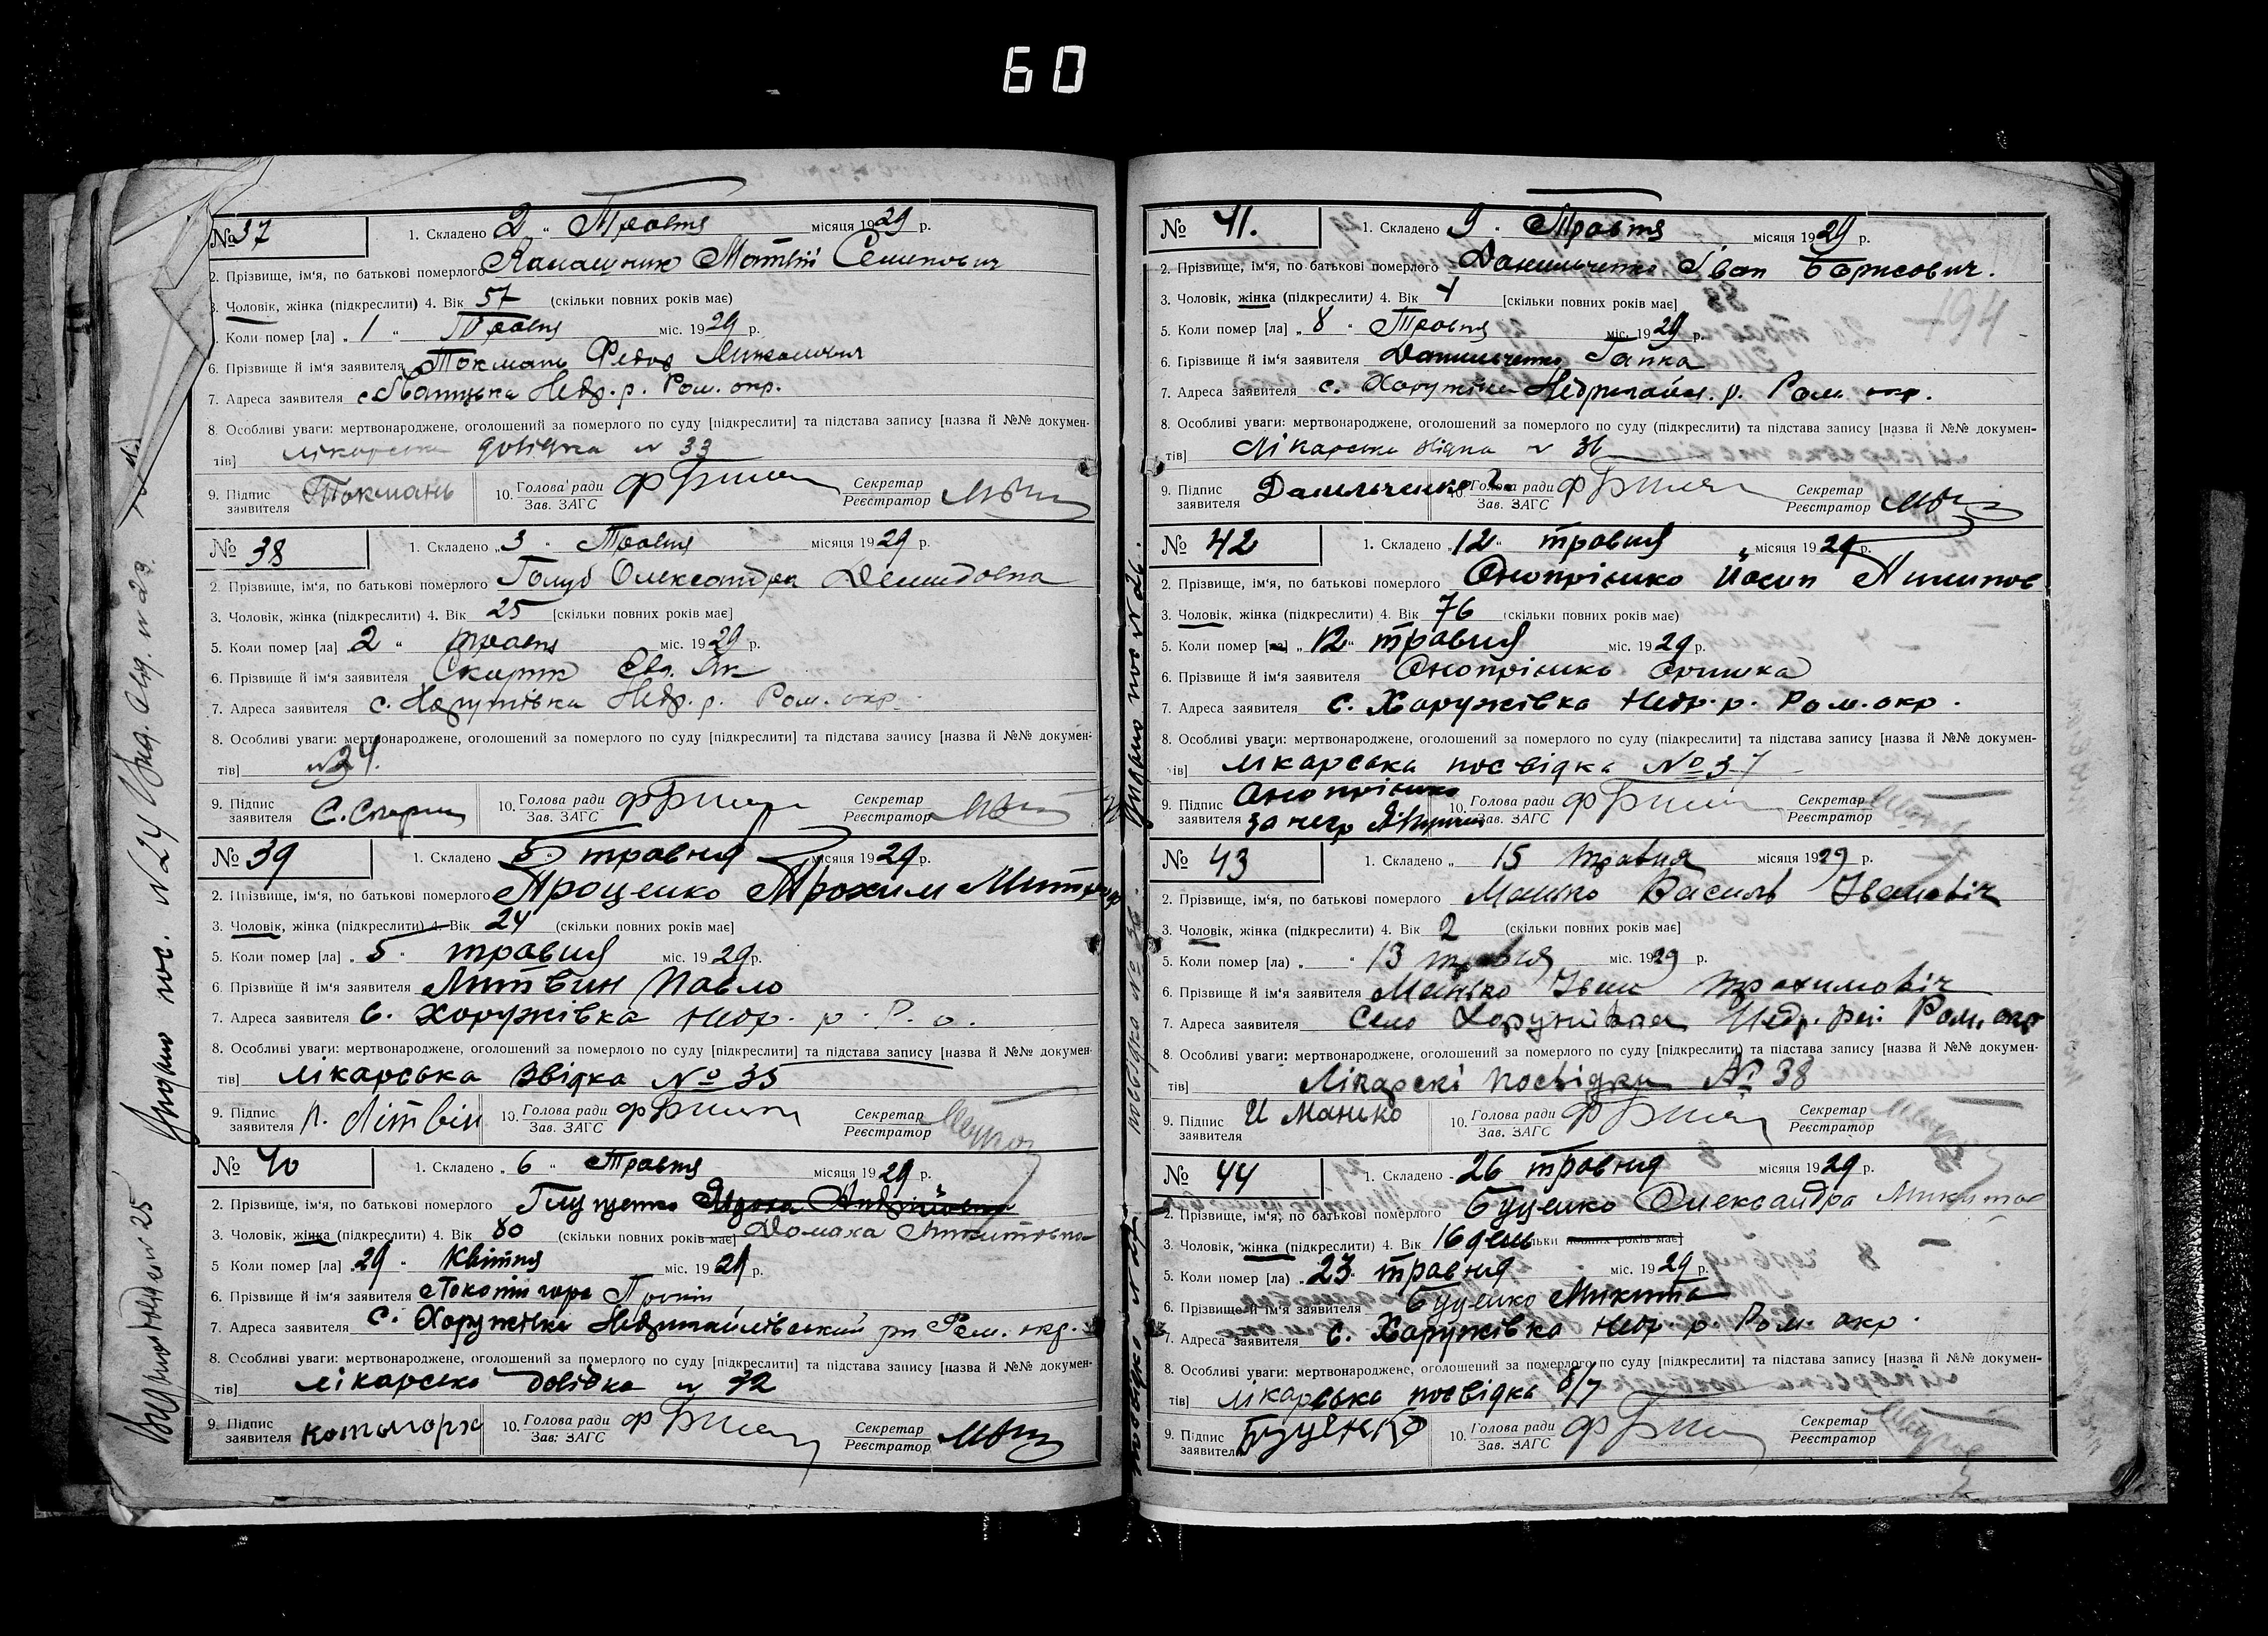 60
№ 37
1. Складено 2 " Травня місяця 1929 р.
2. Прізвище, ім'я, по батькові померлого Калашник Матвій Семенович
3. Чоловік, жінка (підкреслити) 4. Вік 57 (скільки повних років має)
Коли помер [ла] „ 1 " Травня міс. 1929 р.
6. Прізвище й ім'я заявителя Токмань Федор
7. Адреса заявителя Недр. р. Ром. окр.
8. Особливі уваги: мертвонароджене, оголошений за померлого по суду [підкреслити] та підстава запису [назва й №№ докумен-
тів] лікарська довідка № 33
9. Підпис заявителя Токмань 10. Голова ради Зав. ЗАГС Секретар Реєстратор
№ 38
1. Складено „ 3 " Травня місяця 1929 р.
2. Прізвище, ім'я, по батькові померлого Голуб Олександра Демидовна
3. Чоловік, жінка (підкреслити) 4. Вік 25 [скільки повних років має]
5. Коли помер [ла] 2 " травня міс. 1929 р.
6. Прізвище й ім'я заявителя
7. Адреса заявителя с. Хоружівка Недр. р. Ром. окр.
8. Особливі уваги: мертвонароджене, оголошений за померлого по суду [підкреслити] та підстава запису [назва й №№ докумен-
тів] № 34.
9. Підпис заявителя 10. Голова ради Зав. ЗАГС Секретар Реєстратор
№ 39
1. Складено 5 " травня місяця 1929 р.
2. Прізвище, ім'я, по батькові померлого Проценко Трохим
3. Чоловік, жінка (підкреслити) 4. Вік 24 (скільки повних років має]
5. Коли помер [ла] „ 5 " травня міс. 1929 р.
6. Прізвище й ім'я заявителя Литвин Павло
7. Адреса заявителя С. Хоружівка Недр. р. Р. о.
8. Особливі уваги: мертвонароджене, оголошений за померлого по суду [підкреслити] та підстава запису [назва й №№ докумен-
тів] лікарська звідка № 35
9. Підпис заявителя П. Літвін 10. Голова ради Зав. ЗАГС Секретар Реєстратор
№ 40
1. Складено „ 6 " Травня місяця 1929 р.
2. Прізвище, ім'я, по батькові померлого Глущенко
3. Чоловік, жінка (підкреслити) 4. Вік 80 (скільки повних років має] Домаха Микитовна
5 Коли помер [ла] 29 " Квітня міс. 1929 р.
6. Прізвище й ім'я заявителя
7. Адреса заявителя с. Хоружівка Недригайлівський рн Ром. окр.
8. Особливі уваги: мертвонароджене, оголошений за померлого по суду [підкреслити] та підстава запису [назва й №№ докумен-
тів] лікарська довідка № 32
9. Підпис заявителя 10. Голова ради Зав. ЗАГС Секретар Реєстратор
№ 41.
1. Складено 9 " Травня місяця 1929 р.
2. Прізвище, ім'я, по батькові померлого Данильченко Іван Борисович.
3. Чоловік, жінка (підкреслити) 4. Вік [скільки повних років має]
5. Коли помер [ла] „ 8 " Травня міс. 1929 р.
6. Прізвище й ім'я заявителя Данильченко Гапка
7. Адреса заявителя с. Хоружівка Недригайл. р. Ром. окр.
8. Особливі уваги: мертвонароджене, оголошений за померлого по суду (підкреслити) та підстава запису [назва й №№ докумен-
тів] Лікарська звідка № 36
9. Підпис заявителя Данильченко Г. 10. Голова ради Зав. ЗАГС Секретар Реєстратор
№ 42
1. Складено „ 12 " травня місяця 1929 р.
2. Прізвище, ім'я, по батькові померлого Онопрієнко Йосип
3. Чоловік, жінка (підкреслити) 4. Вік 76 (скільки повних років має)
5. Коли помер [ла] „ 12 " травня міс. 1929 р.
6. Прізвище й ім'я заявителя Онопрієнко Оришка
7. Адреса заявителя с. Харужівка Недр. р. Ром. окр.
8. Особливі уваги: мертвонароджене, оголошений за померлого по суду (підкреслити] та підстава запису [назва й №№ докумен-
тів] лікарська посвідка № 37
9. Підпис заявителя Онопрієнко 10. Голова ради Зав. ЗАГС Секретар Реєстратор
№ 43
1. Складено „ 15 травня місяця 1929 р.
2. Прізвище, ім'я, по батькові померлого Манько Василь Іванович
3. Чоловік, жінка (підкреслити) 4. Вік 2 (скільки повних років має]
5. Коли помер [ла) „ " 13 травня міс. 1929 р.
6. Прізвище й ім'я заявителя Манько Іван Трохимовіч
7. Адреса заявителя Село Хоружівка Недр. рай Ром. окр
8. Особливі уваги: мертвонароджене, оголошений за померлого по суду (підкреслити) та підстава запису [назва й №№ докумен-
тів] Лікарскі посвідки № 38
9. Підпис заявителя И Манько 10. Голова ради Зав. ЗАГС Секретар Реєстратор
№ 44
1. Складено 26 травня місяця 1929 р.
2. Прізвище, ім'я, по батькові померлого Буценко Олександра Микитов
3. Чоловік, жінка (підкреслити) 4. Вік 16 день повних років має]
5. Коли помер [ла) „ 23 " травня міс. 1929 р.
6. Прізвище й ім'я заявителя Буценко Микита
7. Адреса заявителя с. Харужівка Недр. р. Ром. окр.
8. Особливі уваги: мертвонароджене, оголошений за померлого по суду [підкреслити] та підстава запису [назва й №№ докумен-
тів] лікарська посвідка б/7
9. Підпис заявителя Буценко 10. Голова ради Зав. ЗАГС Секретар Реєстратор